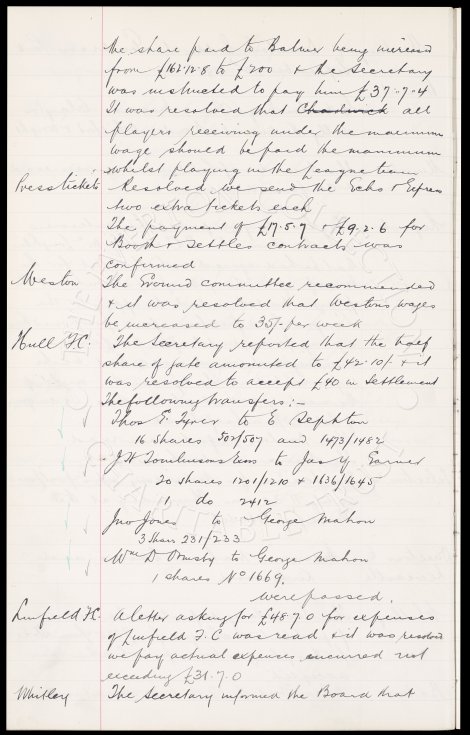 the share paid to Balmer being increased
from £162.12.8 to £200 & the Secretary
was instructed to pay him £37.7.4
It was resolved that Chadwick all
players receiving under the maximum
wage should be paid the maximum
whilst playing in the League team
Press tickets Resolved we send the Echo & Express
two extra tickets each
The payment of £17.5.7 & £9.2.6 for
Booth & Settles contracts was
confirmed
Weston The Ground committee recommended
& it was resolved that Westons wages
be increased to 35/- per week
Hull F.C. The Secretary reported that the half
share of gate amounted to £42.10/- & it
was resolved to accept £40 in settlement
The following transfers :-
Thos E. Tyrer to E Sephton
16 shares 502/507 and 1473/1482
J W Tomlinsons to Jas Y Garner
20 shares 1201/1210 & 1636/1645
1 do 2412
Jno Jones to George Mahon
3 Shares 231/233
Wm D Ormsby to George Mahon
1 shares No 1669.
were passed.
Linfield F.C. A letter asking for £48.7.0 for expenses
of Linfield F.C was read & it was resolved
we pay actual expenses incurred not
exceeding £31.7.0
Whitley The Secretary informed the Board that